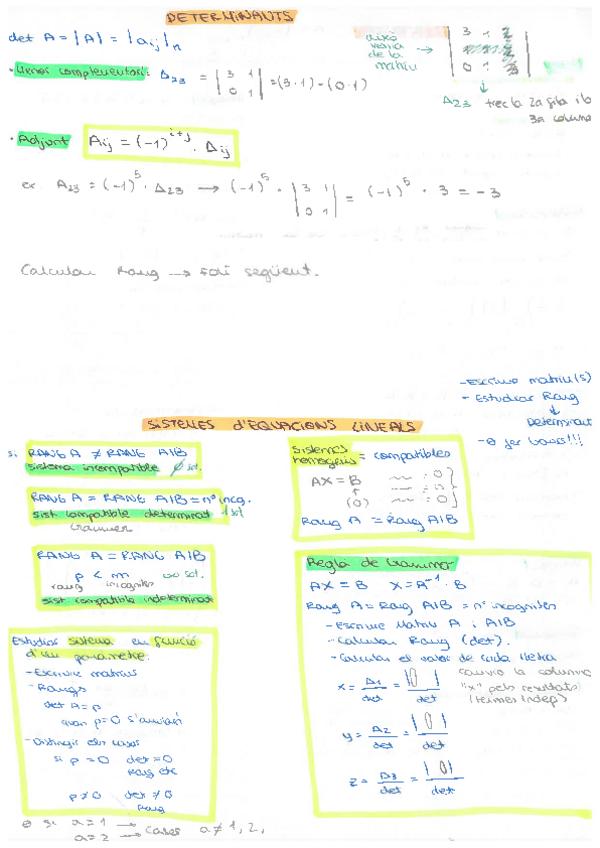 DETERMINANTS
det A = |A| = |aij|n
això
de la
matriu
3 1 2
0 1 3
· Menor complementari: Δ23 = |3 1| = (3·1) - (0·1)
|0 1|
Δ23 trec la 2a fila i la
3a columna
· Adjunt Aij = (-1)^i+j · Δij
ex. A23 = (-1)^5 · Δ23 → (-1)^5 · |3 1| = (-1)^5 · 3 = -3
|0 1|
Calcular Rang → full següent.
- Escriure matriu(s)
- Estudiar Rang
↓
Determinant
- o fer Gauss!!!
SISTEMES d'EQUACIONS LINEALS
si RANG A ≠ RANG A|B
sistema incompatible ∅ sol.
RANG A = RANG A|B = nº incog.
sist. compatible determinat 1 sol
Crammer
RANG A = RANG A|B
p < m ∞ sol.
rang incognites
sist compatible indeterminat
Sistemes
homogenis = compatibles
AX = B
(0)
Rang A = Rang A|B
Regla de Crammer
AX = B X = A^-1 · B
Rang A = Rang A|B = nº incognites
- Escriure Matriu A i A|B
- Calcular Rang (det).
- Calcular el valor de cada lletra
x = Δ1/det = |0 |/det
canvio la columna
"x" pels resultats
(termes indep)
y = Δ2/det = | 0 |/det
z = Δ3/det = | 0|/det
Estudiar sistema en funció
d'un paràmetre.
- Escriure matrius
- Rangs
det A = p
quan p = 0 s'anul·larà
- Distingir els casos
si p = 0 det = 0
Rang etc
p ≠ 0 det ≠ 0
Rang
o si a = 1 →
a = 2 → Casos a ≠ 1, 2,